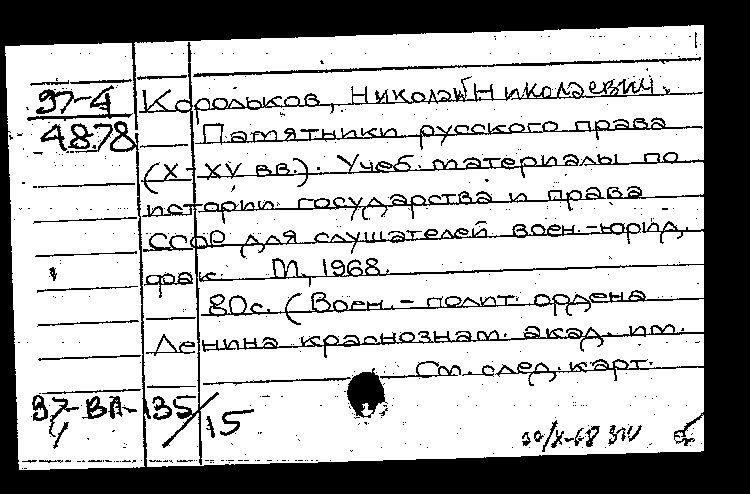 97-4 Корольков, Николай Николаевич.
4878 Памятники русского права
(X-XV вв.). Учеб. материалы по
истории государства и права
СССР для слушателей воен.-юрид.
фак. М., 1968.
80с. (Воен.-полит. ордена
Ленина краснознам. акад. им.
См. след. карт.
97-ВЛ-135/15